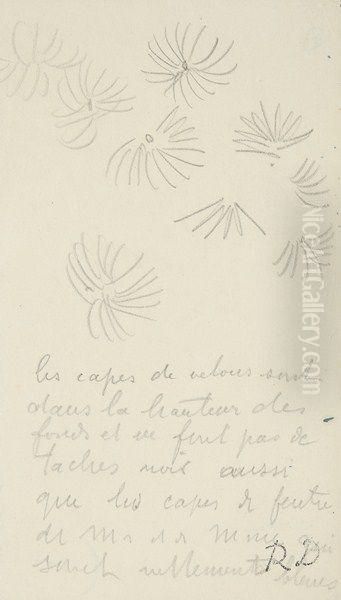 les capes de velours sont
dans la hauteur des
fonds et ne font pas de
taches noir aussi
que les capes de feutre
de Mr et Mme
sont nettement bleues
RD
NiceArtGallery.com